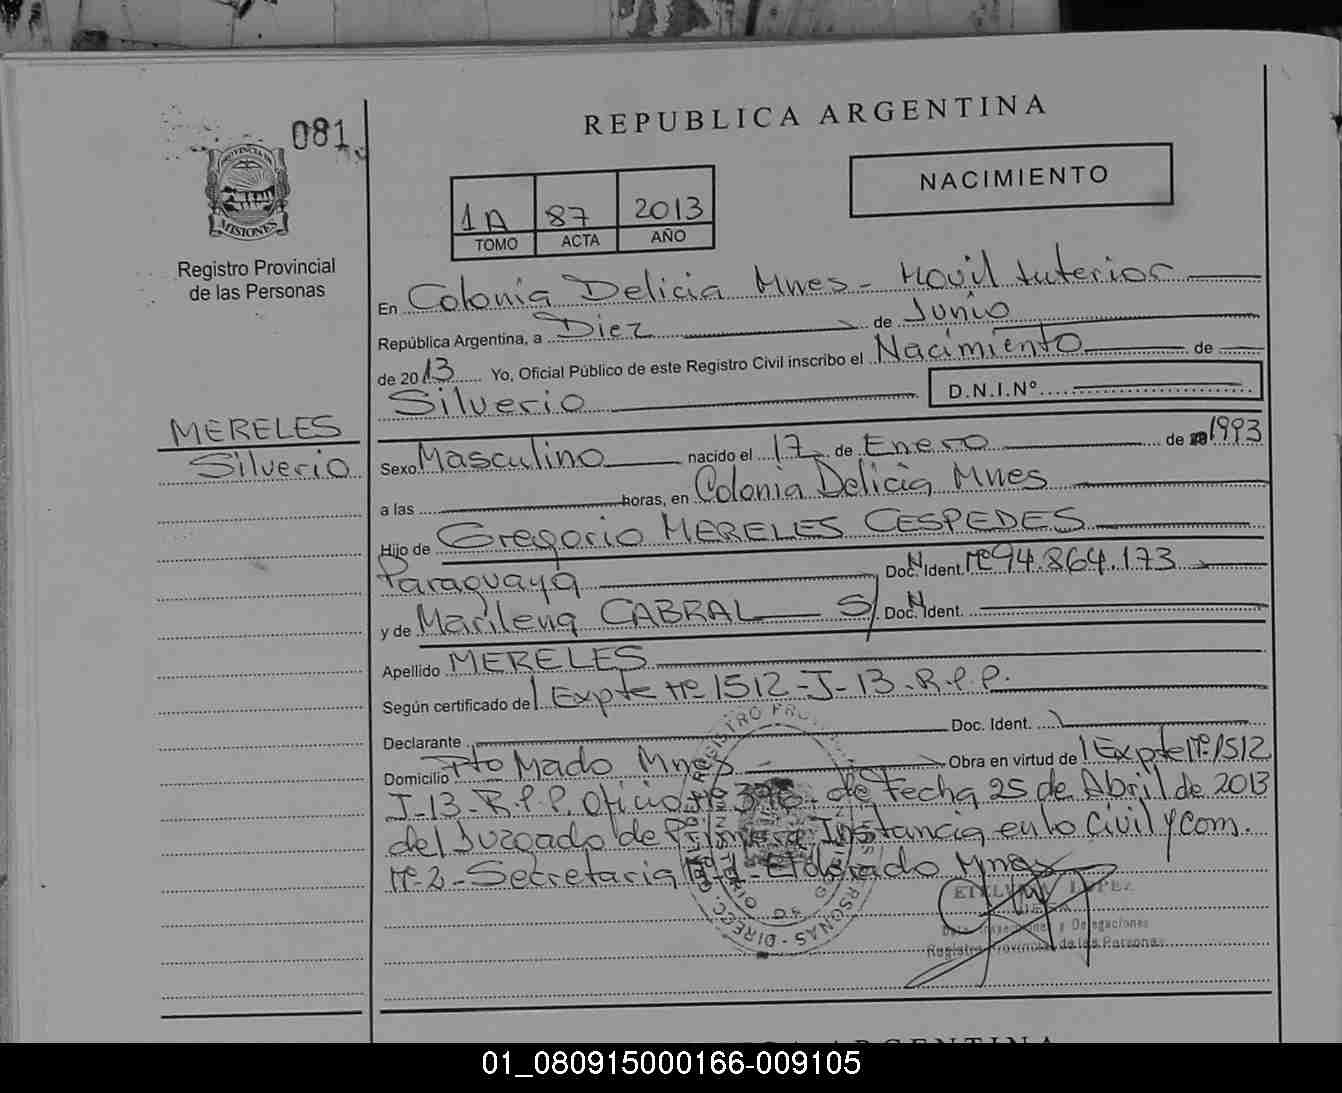 081
REPUBLICA ARGENTINA
NACIMIENTO
PROVINCIA DE
MISIONES
Registro Provincial
de las Personas
1A 87 2013
TOMO ACTA AÑO
En Colonia Delicia Mnes - Movil Interior
República Argentina, a Diez de Junio
de 2013 Yo, Oficial Público de este Registro Civil inscribo el Nacimiento de
Silverio D.N.I.Nº
MERELES
Silverio
Sexo Masculino nacido el 17 de Enero de 1993
a las horas, en Colonia Delicia Mnes
Hijo de Gregorio MERELES CESPEDES
Paraguaya Doc. Ident. Nº 94.864.173
y de Marilena CABRAL S/ Doc. Ident.
Apellido MERELES
Según certificado de Expte Nº 1512-J-13-R.P.P.
Declarante Doc. Ident.
Domicilio Pto Mado Mnes Obra en virtud de Expte Nº 1512
J-13-R.P.P. Oficio Nº 396 de Fecha 25 de Abril de 2013
del Juzgado de Primera Instancia en lo Civil y Com.
Nº 2 - Secretaria Eldorado Mnes
LOPEZ
y Delegaciones
Registro Provincial de las Personas
01_080915000166-009105